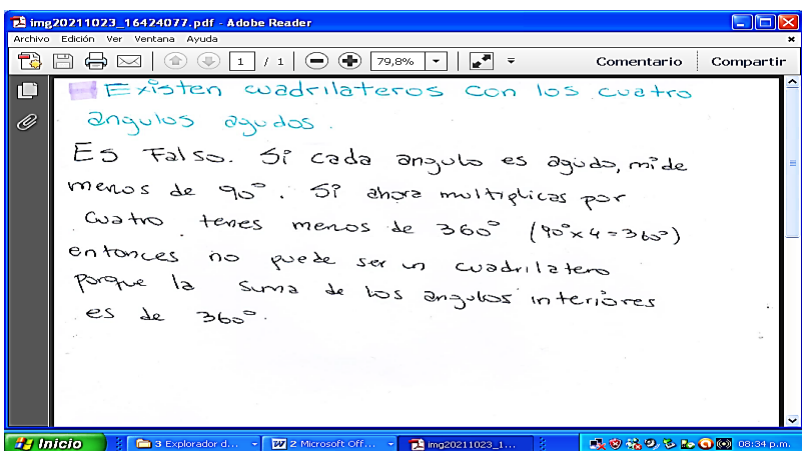 img20211023_16424077.pdf - Adobe Reader
Archivo Edición Ver Ventana Ayuda
1 / 1 79,8% Comentario Compartir
Existen cuadrilateros con los cuatro
angulos agudos.
Es Falso. Si cada angulo es agudo, mide
menos de 90°. Si ahora multiplicas por
cuatro tenes menos de 360° (90°x4=360°)
entonces no puede ser un cuadrilatero
porque la suma de los angulos interiores
es de 360°.
Inicio 3 Explorador d... 2 Microsoft Off... img20211023_1... 08:34 p.m.